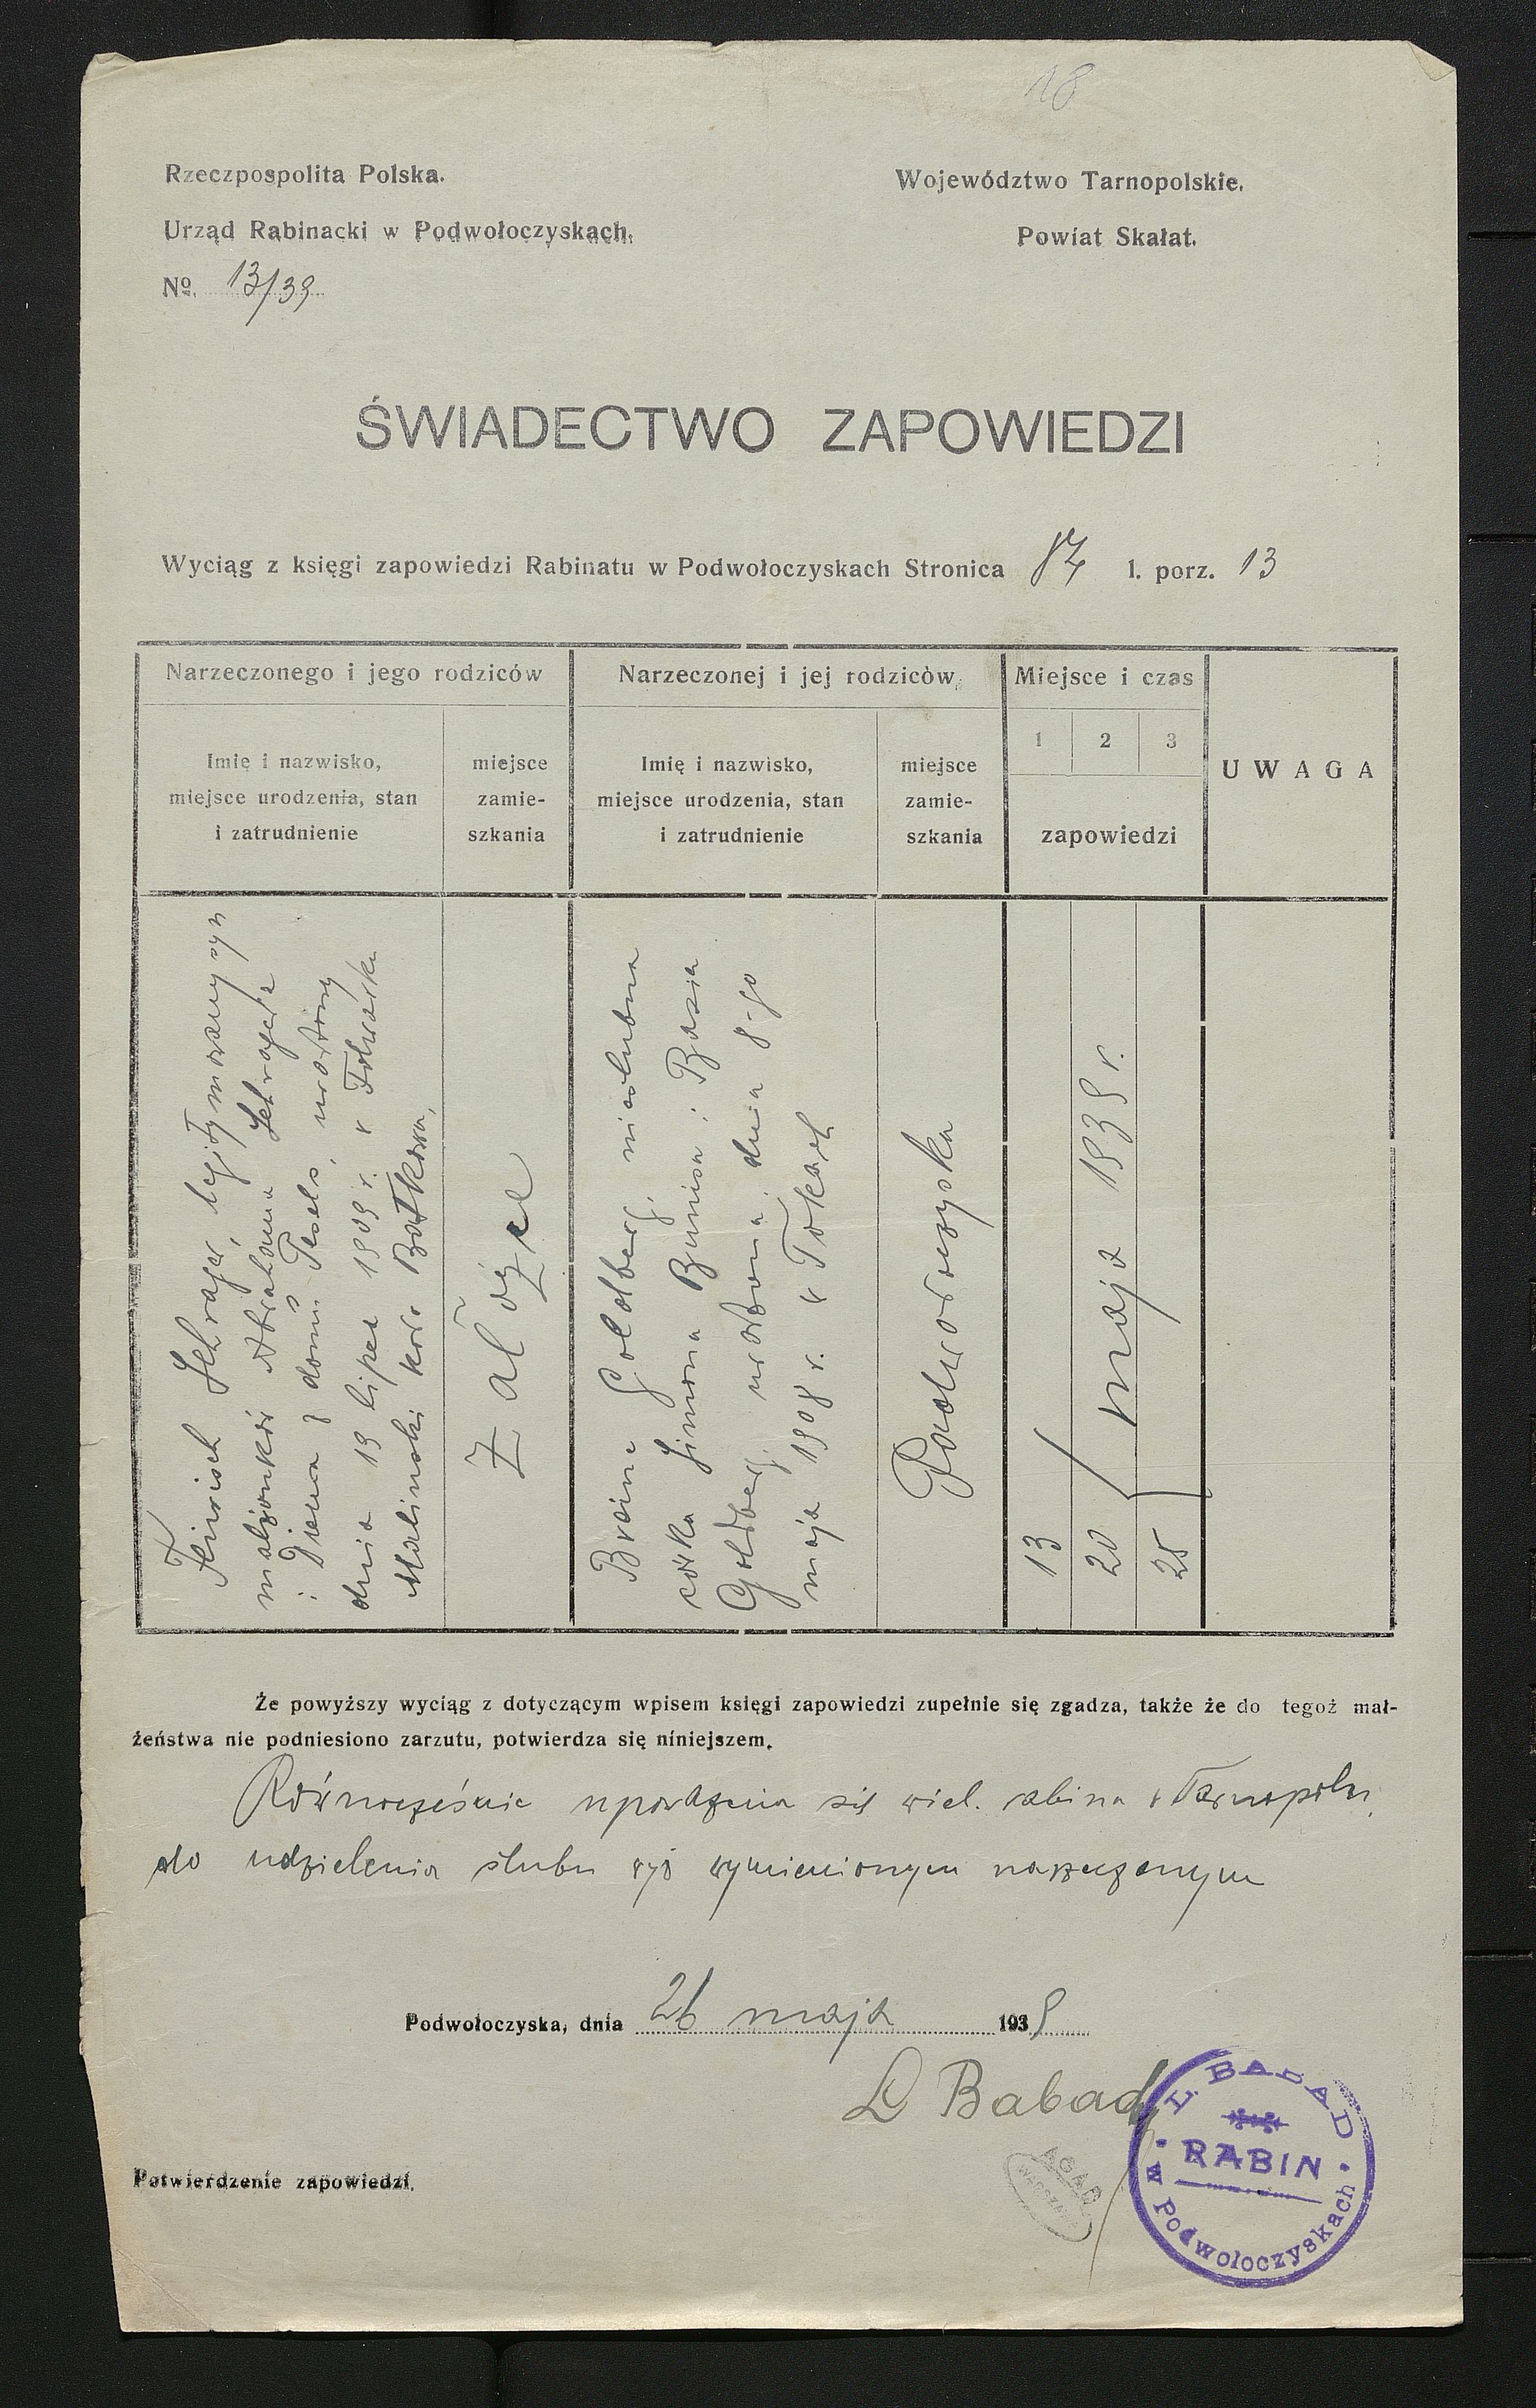 18
Rzeczpospolita Polska.
Województwo Tarnopolskie.
Urząd Rabinacki w Podwołoczyskach.
Powiat Skałat.
№. 13/39
ŚWIADECTWO ZAPOWIEDZI
Wyciąg z księgi zapowiedzi Rabinatu w Podwołoczyskach Stronica 87 l. porz. 13
Narzeczonego i jego rodziców
Narzeczonej i jej rodziców
Miejsce i czas
1 2 3
zapowiedzi
UWAGA
Imię i nazwisko,
miejsce urodzenia, stan
i zatrudnienie
miejsce
zamie-
szkania
Imię i nazwisko,
miejsce urodzenia, stan
i zatrudnienie
miejsce
zamie-
szkania
Schrager, legitymowany syn
małżonków Abrahama Schragera
i z domu urodzony
dnia 19 lipca 1909 r. w Folwarku
Załoźce
Goldberg, nieślubna
córka Simona i Basia
Goldberg, urodzona dnia 8-go
maja 1908 r. w Tokach
Podwołoczyska
13
20
25
maja 1939 r.
Że powyższy wyciąg z dotyczącym wpisem księgi zapowiedzi zupełnie się zgadza, także że do tegoż mał-
żeństwa nie podniesiono zarzutu, potwierdza się niniejszem.
Równocześnie upoważnia się wiel. rabina w Tarnopolu
do udzielenia ślubu wyż wymienionym narzeczonym
Podwołoczyska, dnia 26 maja 1939
L Babad
L. BABAD
RABIN
w Podwołoczyskach
AGAD
WARSZAWA
Potwierdzenie zapowiedzi.